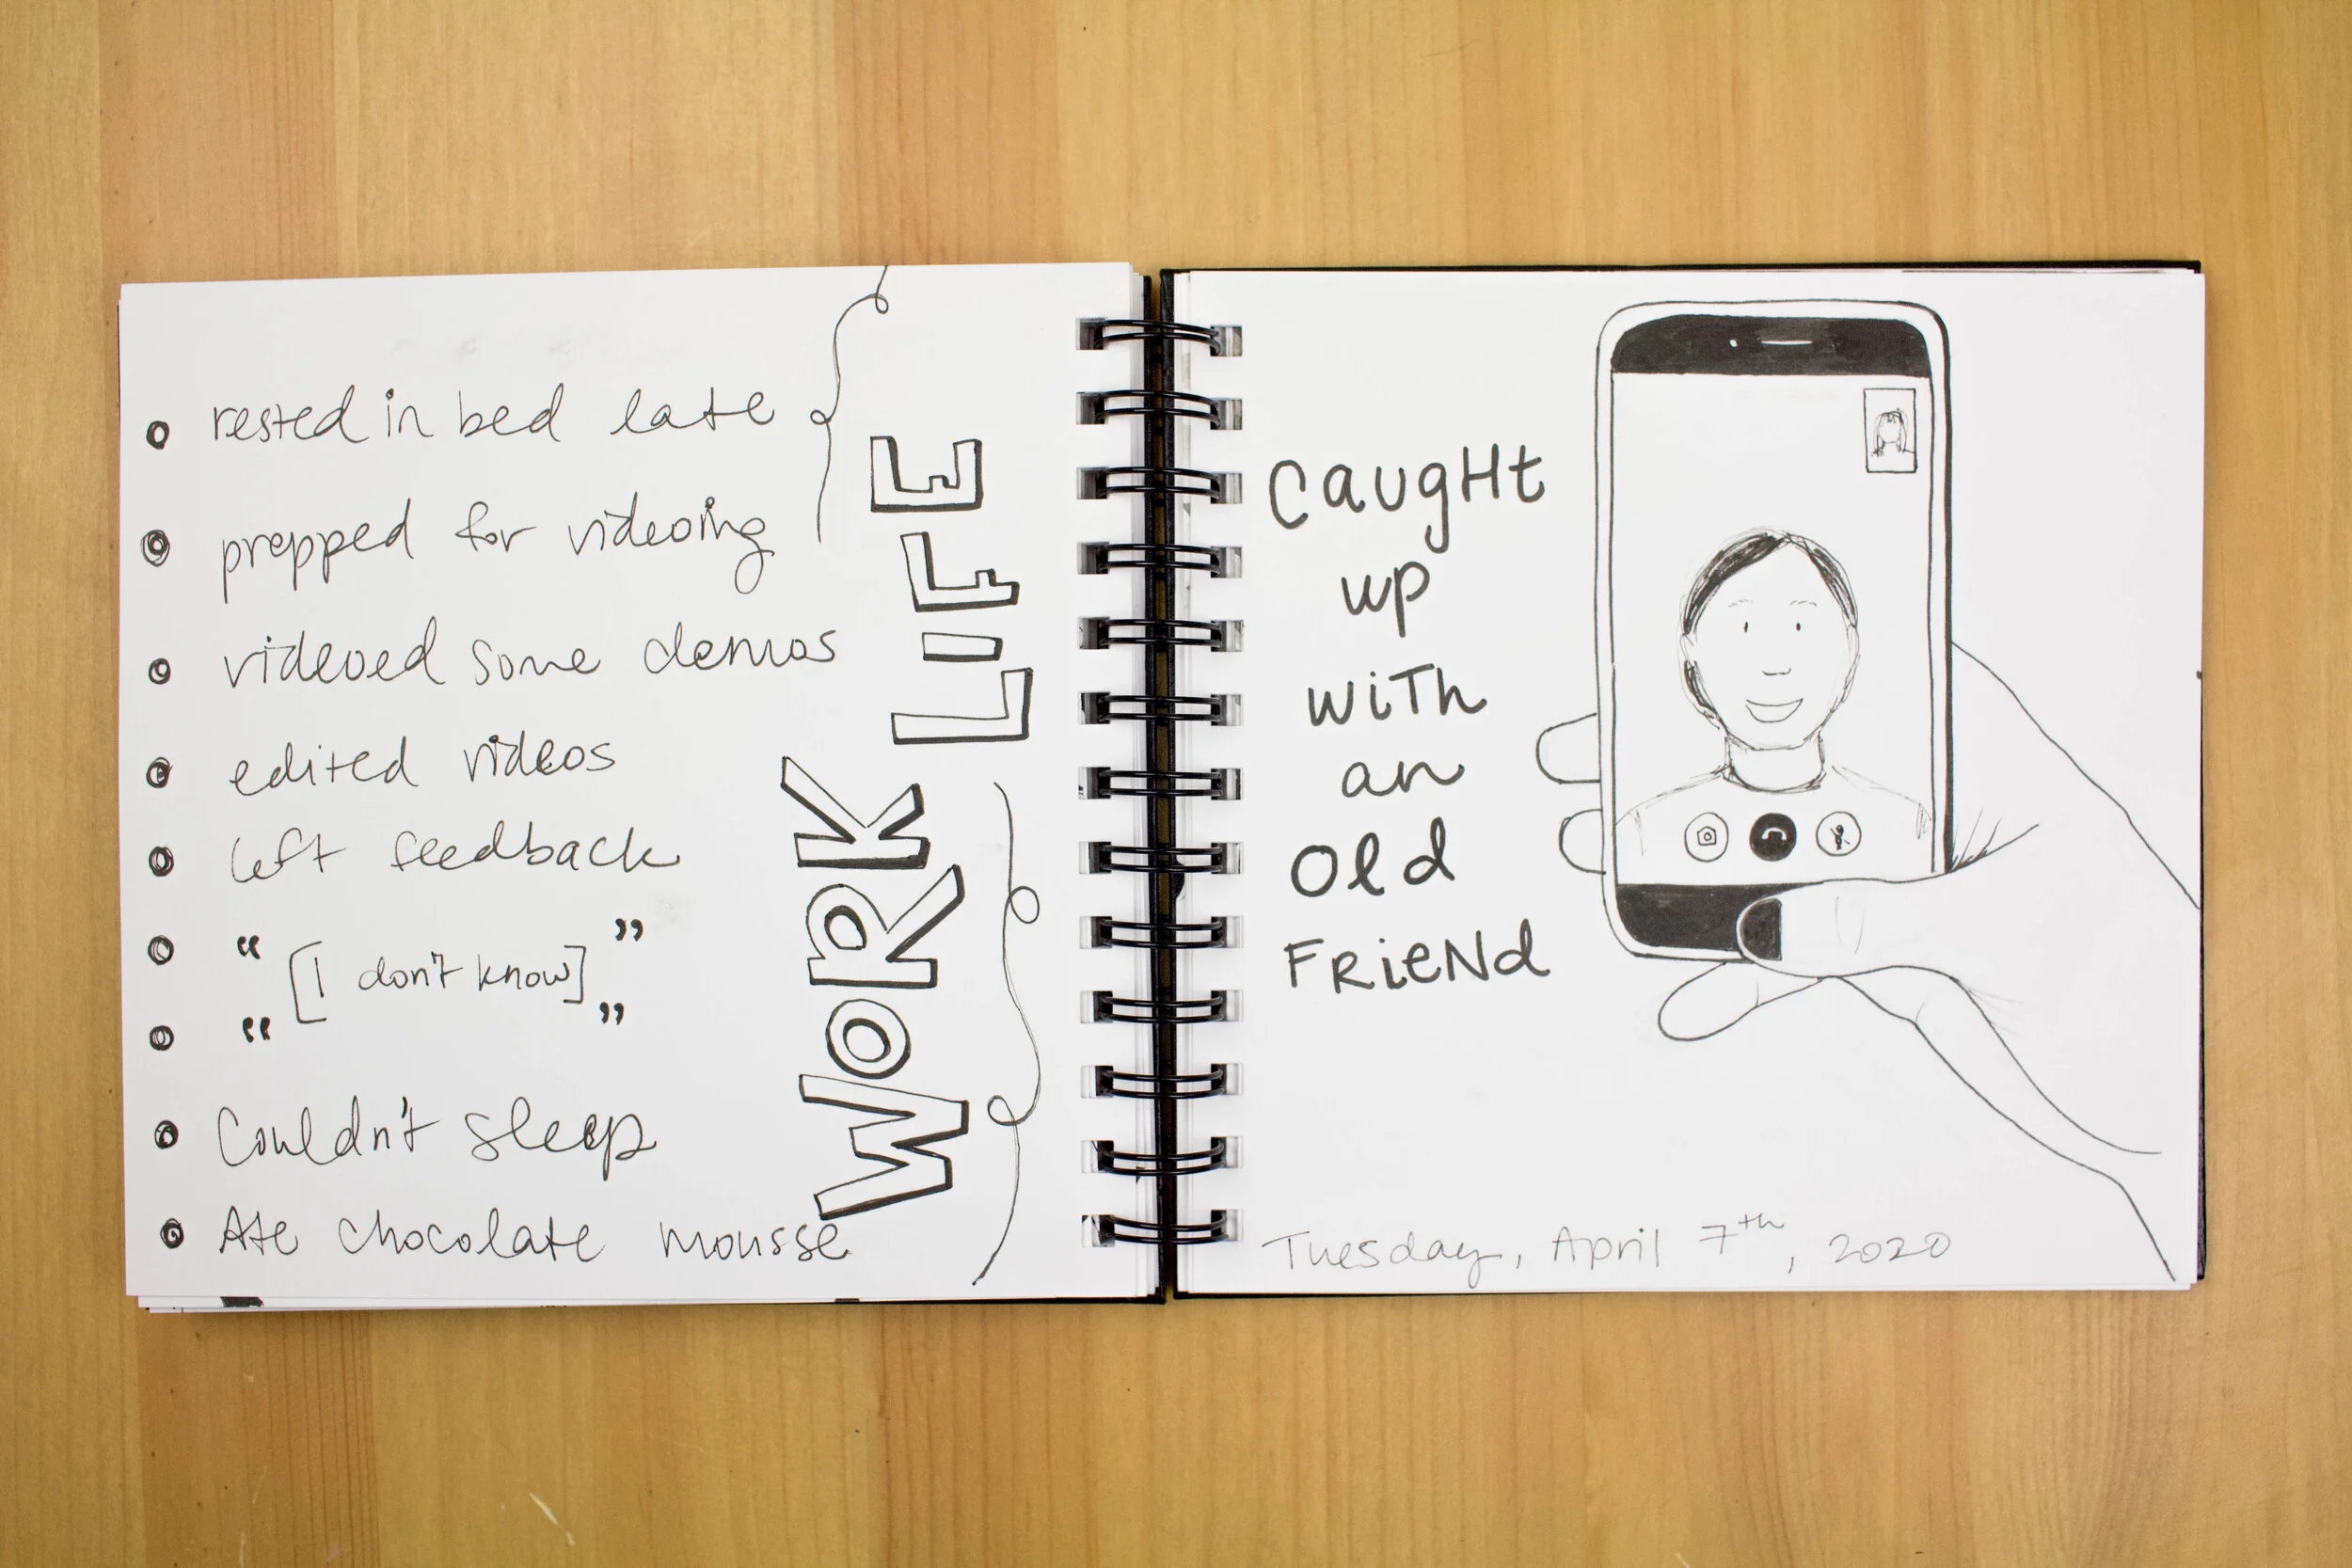 rested in bed late
prepped for videoing
videoed some demos
edited videos
left feedback
“ ”
[I don't know]
“ ”
Couldn't sleep
Ate chocolate mousse
WORK LIFE
CaugHt
up
WiTh
an
Old
FRieNd
Tuesday, April 7th, 2020